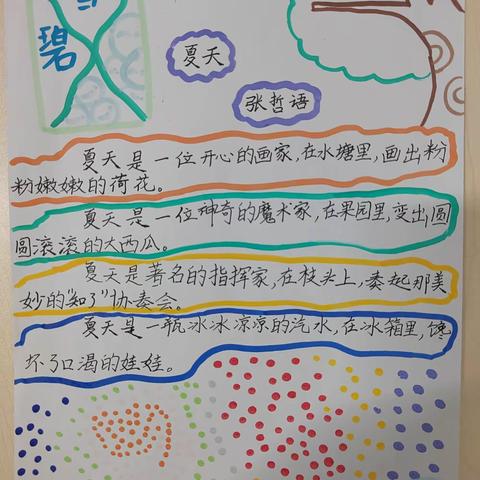 碧
夏天
张哲语
夏天是一位开心的画家,在水塘里,画出粉
粉嫩嫩的荷花。
夏天是一位神奇的魔术家,在果园里,变出圆
圆滚滚的大西瓜。
夏天是著名的指挥家,在枝头上,奏起那美
妙的“知了”协奏会。
夏天是一瓶冰冰凉凉的汽水,在冰箱里,馋
坏了口渴的娃娃。